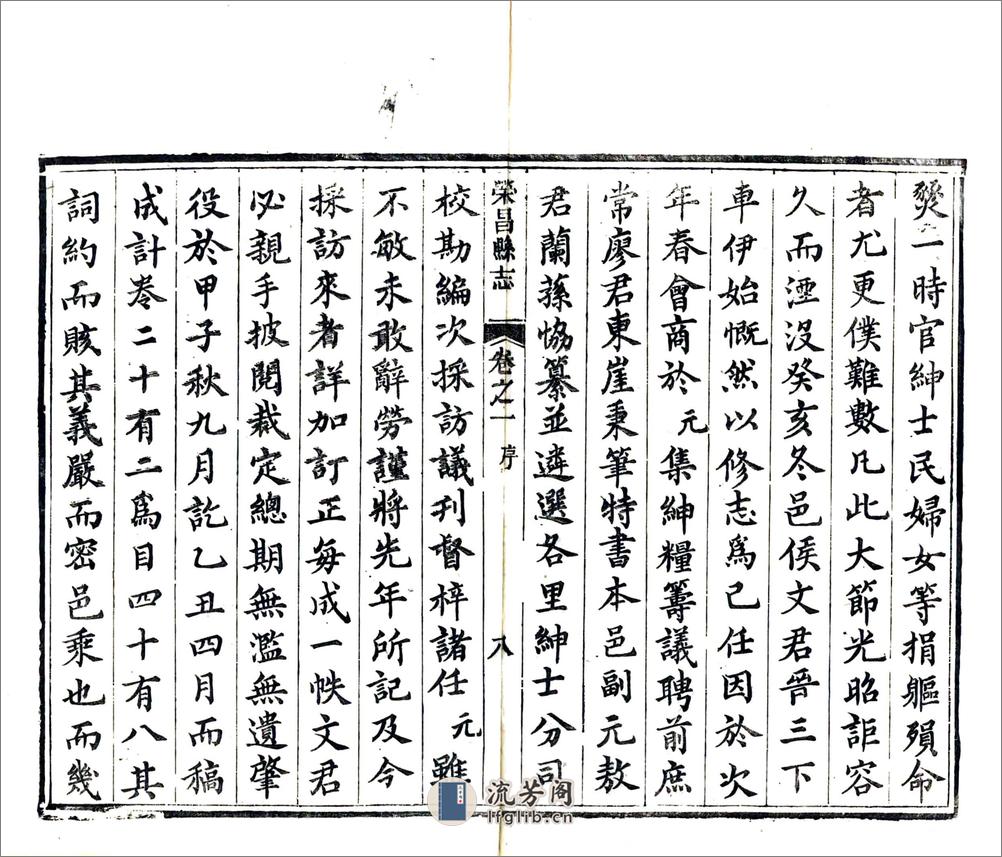 燹一時官紳士民婦女等捐軀殞命
者尤更僕難數凡此大節光昭詎容
久而湮沒癸亥冬邑侯文君晉三下
車伊始慨然以修志爲己任因於次
年春會商於元集紳糧籌議聘前庶
常廖君東崖秉筆特書本邑副元敖
君蘭蓀恊纂並遴選各里紳士分司
榮昌縣志 卷之一 序 八
校勘編次採訪議刊督梓諸任元雖
不敏未敢辭勞謹將先年所記及今
採訪來者詳加訂正每成一帙文君
必親手披閱裁定總期無濫無遺肇
役於甲子秋九月訖乙丑四月而稿
成計卷二十有二爲目四十有八其
詞約而賅其義嚴而密邑乘也而幾
流芳阁
lfglib.cn